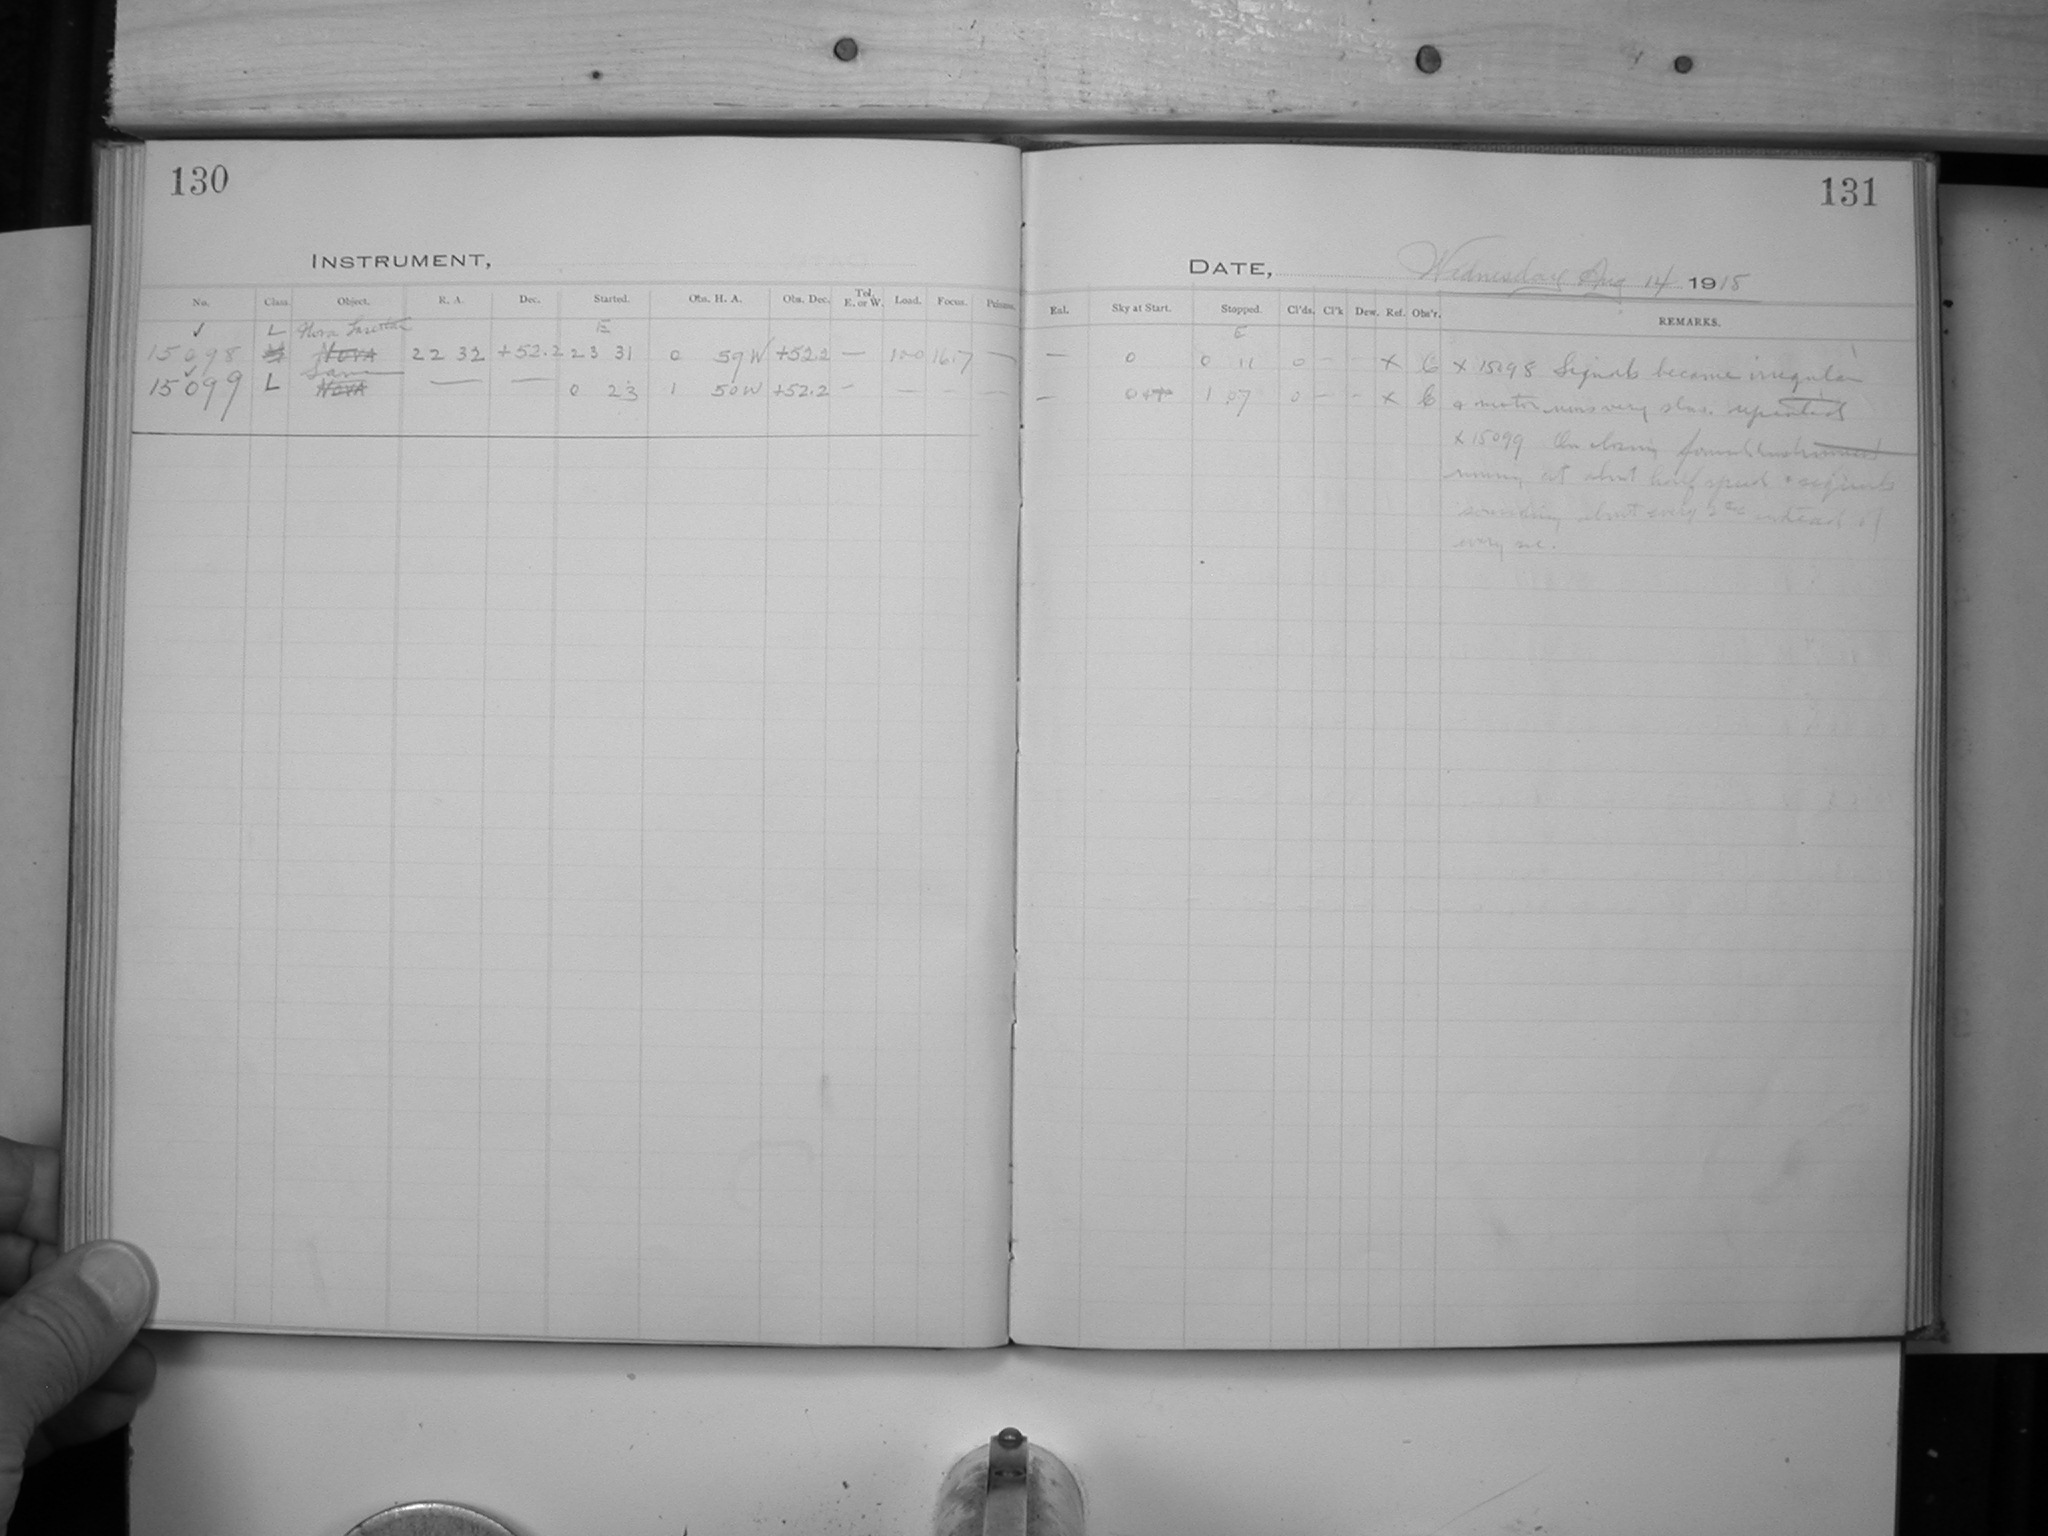 130
INSTRUMENT,
No. Class. Object. R. A. Dec. Started. Obs. H. A. Obs. Dec. Tel. E. or W. Load. Focus. Prisms.
✓ L Nova Lacertae E
15098 NOVA 22 32 +52.2 23 31 0 59 W +52.2 — 100 16.7 —
✓ Same
15099 L NOVA — — 0 23 1 50 W +52.2 — — — —
131
DATE, Wednesday Aug 14 1918
Eml. Sky at Start. Stopped. Cl'ds. Cl'k Dew. Ref. Obs'r. REMARKS.
E
— 0 0 11 0 — — x C x 15098 Signals became irregular
— 0 1 07 0 — — x C & motor runs very slow. repeated
x 15099 On closing found instrument
running at about half speed & signals
sounding about every 2 sec instead of
every sec.